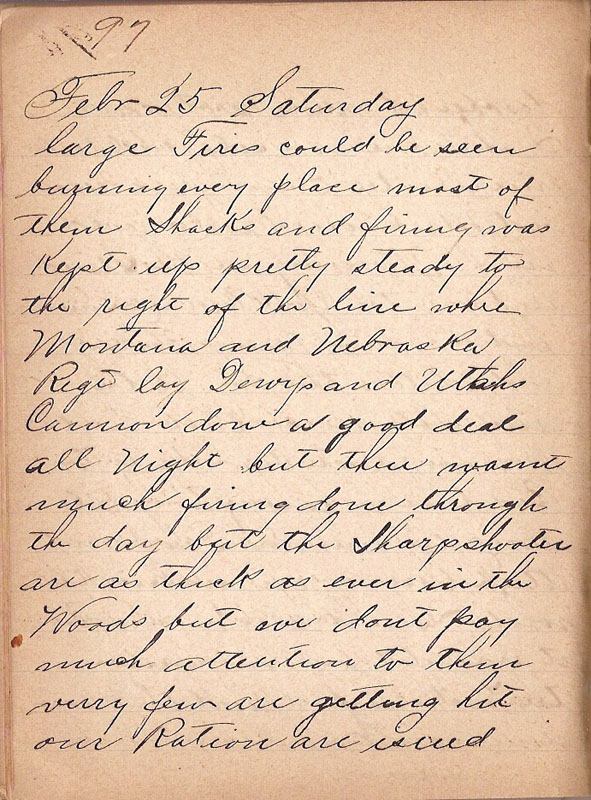 97
Febr 25 Saturday
large Fires could be seen
burning every place most of
them Shacks and firing was
Kept up pretty steady to
the right of the line where
Montana and Nebraska
Regt lay Dewys and Utahs
Cannon done a good deal
all Night but there wasnt
much firing done through
the day but the Sharpshooter
are as thick as ever in the
Woods but we dont pay
much attention to them
verry few are getting hit
our Ration are isued